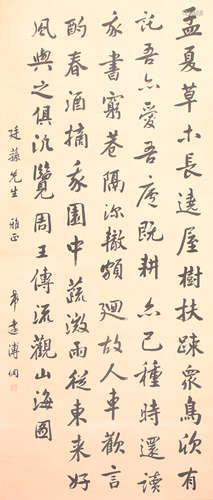 孟夏草木長遶屋樹扶疎眾鳥欣有
託吾亦愛吾廬既耕亦已種時還讀
我書窮巷隔深轍頗迴故人車歡言
酌春酒摘我園中蔬微雨從東來好
風與之俱汎覽周王傳流觀山海圖
先生 雅正
溥侗